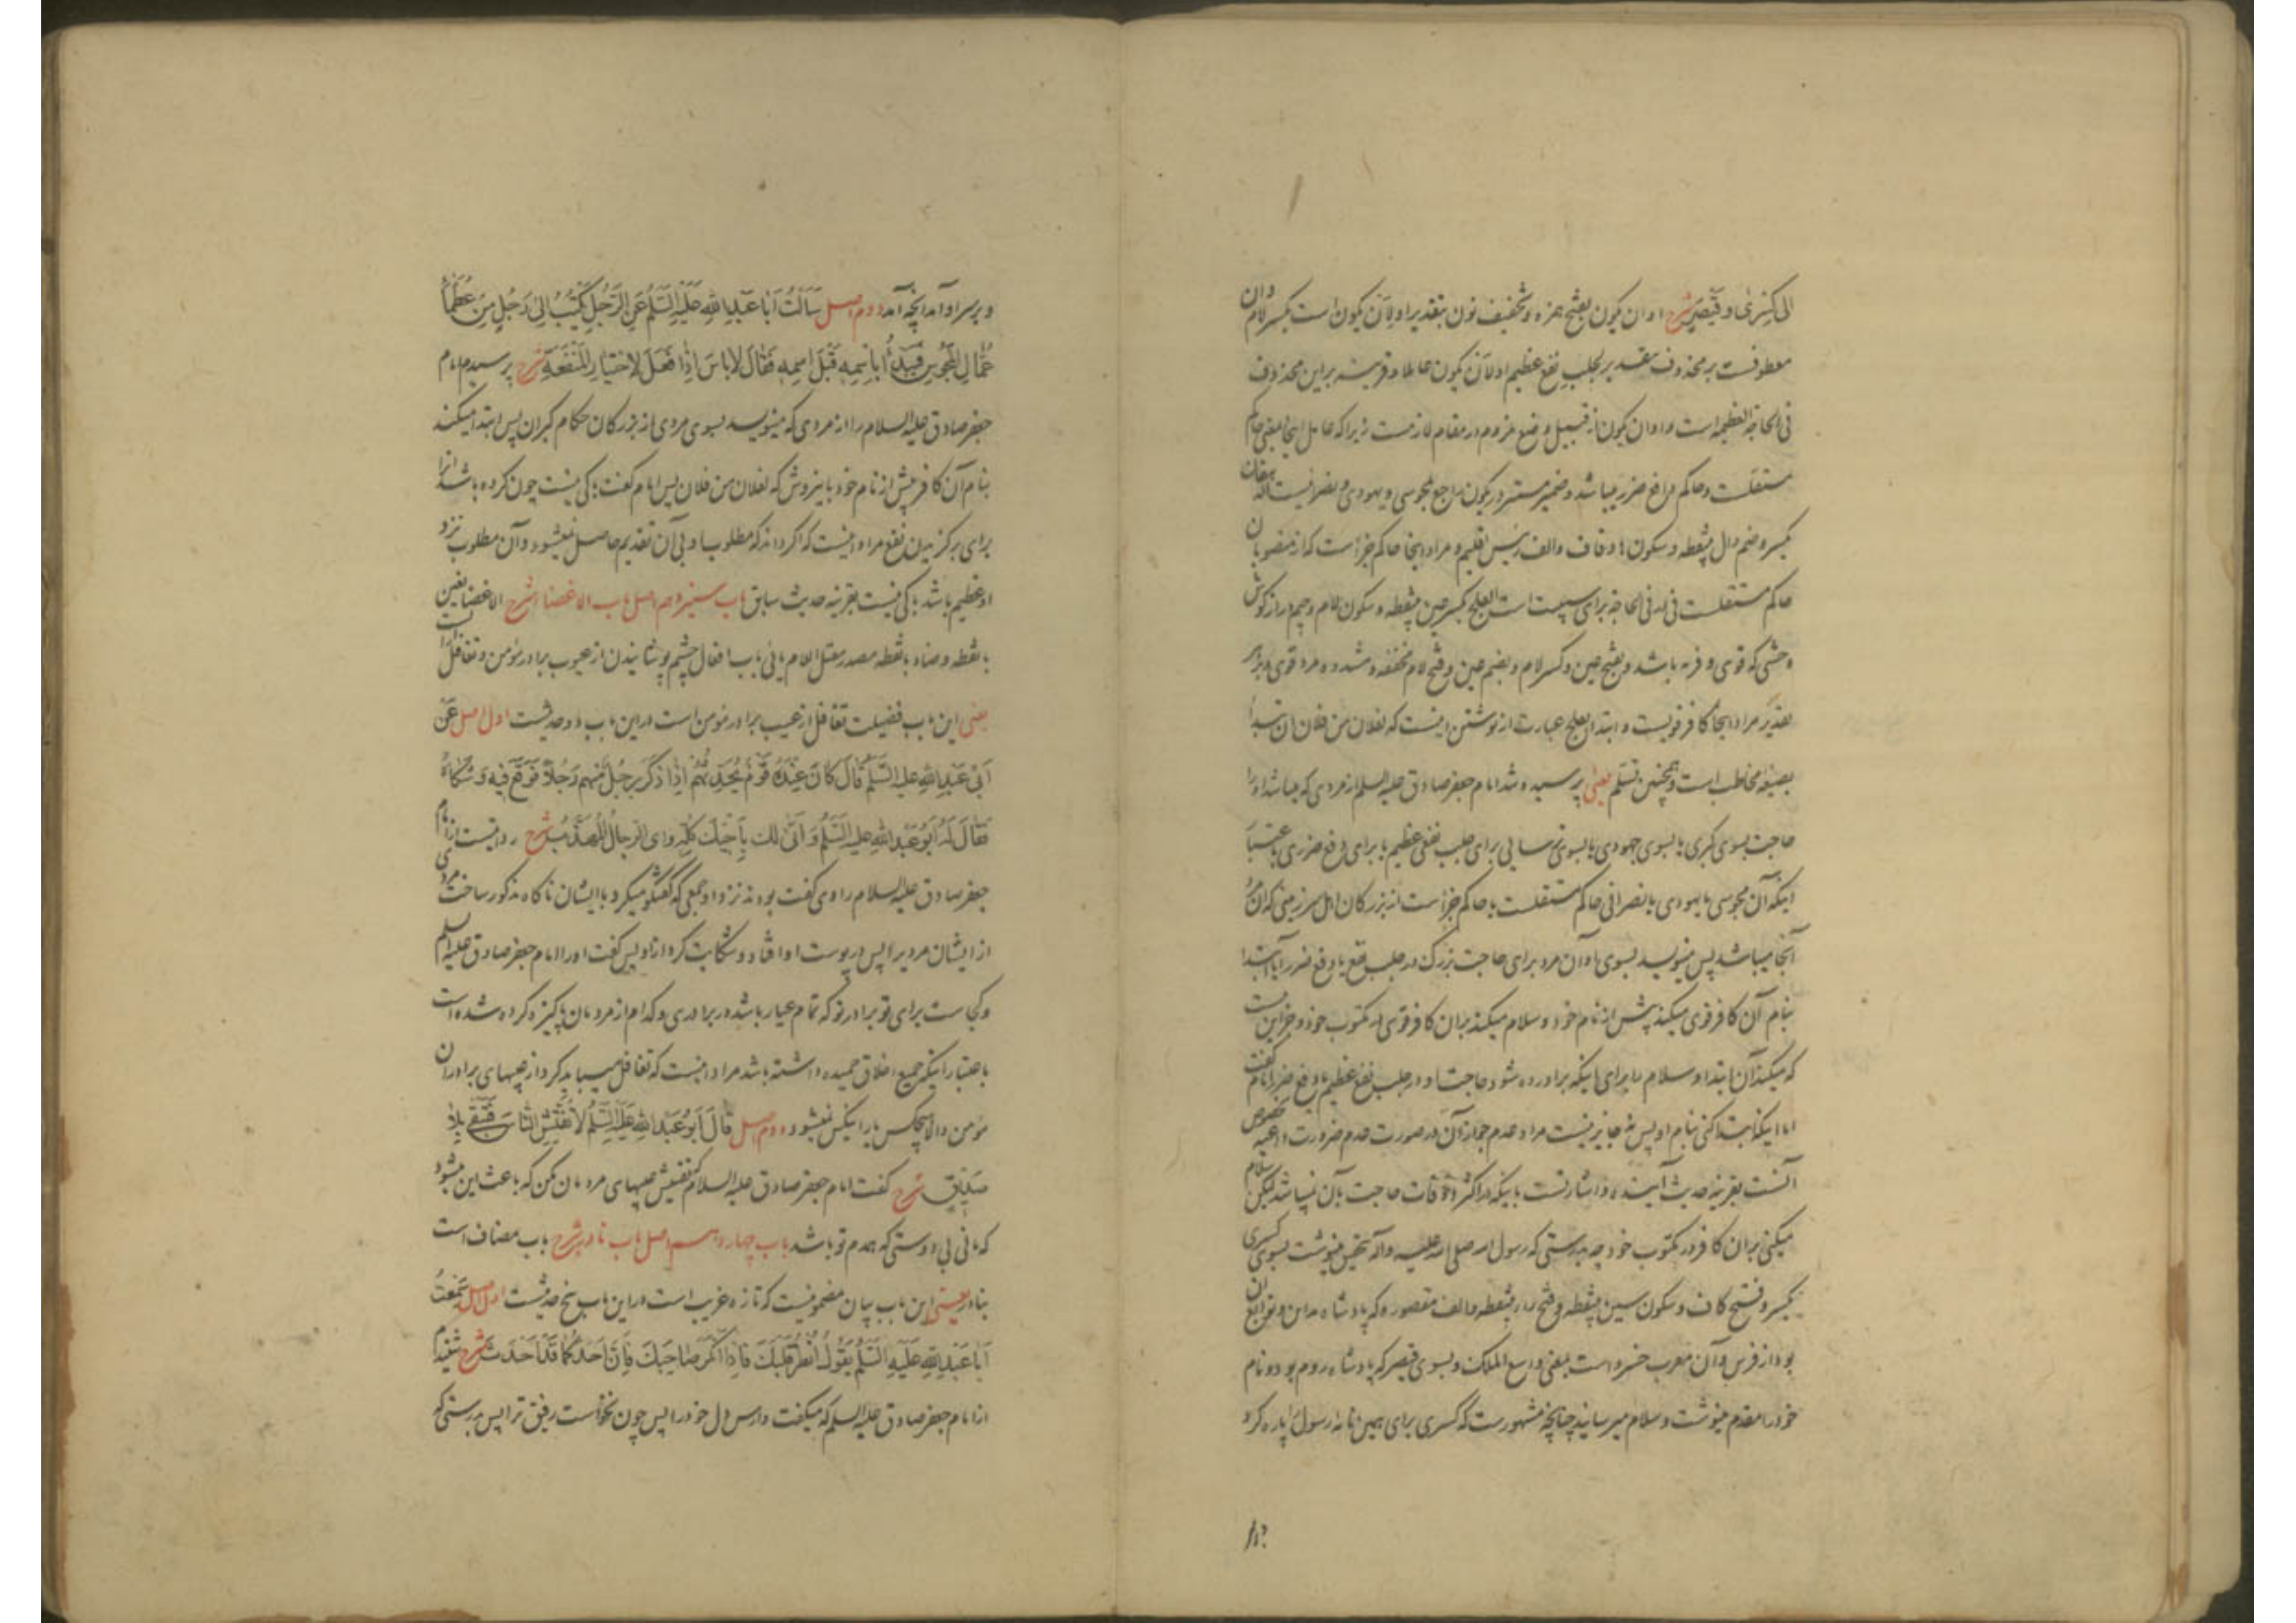 الی کسری و قیصر شرح او ان یکون بفتح همزه و تخفیف نون بتقدیر اولان یکون است بکسر لام و ان
معطوفست بر محذوف بتقدیر لجلب نفع عظیم اولان یکون عاملا و قرینه بر این محذوف
فی الحاجة العظیمه است و او ان یکون از قبیل وضع ملزوم در مقام لازمست زیرا که عامل اینجا بمعنی حاکم
مستقلست و حاکم دافع ضرر میباشد و ضمیر مستتر در یکون راجع بمجوسی و یهودی و نصرانیست دهقان
بکسر و ضم دال بینقطه و سکون ها و قاف و الف رئیس اقلیم و مراد اینجا حاکم جزأست که از منصوبان
حاکم مستقلست فی در فی الحاجة برای سببیت است العلج بکسر عین بینقطه و سکون لام و جیم دراز گوش
وحشی که قوی و فربه باشد و بفتح عین و کسر لام و بضم عین و فتح لام مخففه و مشدده مرد قوی هر بزر
بعد دیگر مراد اینجا کافر قویست و ابتدا بعلج عبارت از نوشتن اینست که لفلان من فلان ان تبدأ
بصیغه مخاطب است و همچنین تسلم یعنی پرسیده شد امام جعفر صادق علیه السلام از مردی که میباشد او را
حاجت بسوی گبری یا بسوی جهودی یا بسوی ترسایی برای جلب نفعی عظیم یا برای دفع ضرری باعتبار
اینکه آن مجوسی یا یهودی یا نصرانی حاکم مستقلست یا حاکم جزأست از بزرگان اهل سرزمینی که آن مرد
آنجا میباشد پس مینویسد بسوی او آن مرد برای حاجت بزرگ در جلب نفع یا دفع ضرر آیا ابتدا
بنام آن کافر قوی میکند پیش از نام خود و سلام میکند بران کافر قوی در مکتوب خود و جز این نیست
که میکند آن ابتدا و سلام را برای اینکه برآورده شود حاجت او در جلب نفع عظیم یا دفع ضرر امام گفت
اما اینکه ابتدا کنی بنام او پس نه جایز نیست مراد عدم جواز آن در صورت عدم ضرورت داعیه بخصوص
آنست بقرینه حدیث آینده و اشارتست باینکه در اکثر اوقات حاجت بآن نمیباشد لیکن سلام
میکنی بران کافر در مکتوب خود چه بدرستی که رسول الله صلی الله علیه و آله بتحقیق مینوشت بسوی کسری
بکسر و فتح کاف و سکون سین بینقطه و فتح راء بینقطه و الف مقصوره که پادشاه مداین و توابع آن
بود از فرس و آن معرب خسرو است بمعنی واسع الملک و بسوی قیصر که پادشاه روم بود و نام
خود را مقدم مینوشت و سلام میرسانید چنانچه مشهورست که کسری برای همین نامه رسول را پاره کرد
و بر سر او آمد آنچه آمد دوم اصل سَأَلْتُ أَبَا عَبْدِ اللهِ عَلَيْهِ السَّلَمُ عَنِ الرَّجُلِ يَكْتُبُ إِلَىٰ رَجُلٍ مِنْ عُظَمَاءِ
عُمَّالِ الْمَجُوسِ فَيَبْدَأُ بِاسْمِهِ قَبْلَ اسْمِهِ فَقَالَ لَا بَأْسَ إِذَا فَعَلَ لِاخْتِيَارِ الْمَنْفَعَةِ شرح پرسیدم امام
جعفر صادق علیه السلام را از مردی که مینویسد بسوی مردی از بزرگان حکام گبران پس ابتدا میکند
بنام آن کافر پیش از نام خود باین روش که لفلان من فلان پس امام گفت باکی نیست چون کرده باشد آنرا
برای برگزیدن نفع مراد اینست که اگر داند که مطلوب او بی آن تقدیم حاصل نمیشود و آن مطلوب نزد
او عظیم باشد باکی نیست بقرینه حدیث سابق باب سیزدهم اصل باب الاغضاء شرح الاغضا بغین
با نقطه و ضاد با نقطه مصدر معتل اللام یائی باب افعال چشم پوشانیدن از عیوب برادر مؤمن و تغافل است از آن
یعنی این باب فضیلت تغافل از عیب برادر مؤمن است در این باب دو حدیثست اول اصل عَنْ
أَبِي عَبْدِ اللهِ علیه السَّلَمُ قَالَ كَانَ عِنْدَهُ قَوْمٌ يُحَدِّثُهُمْ إِذَا ذَكَرَ رَجُلٌ مِنْهُمْ رَجُلًا فَوَقَعَ فِيهِ وَشَكَاهُ
فَقَالَ لَهُ أَبُو عَبْدِ اللهِ علیه السَّلَمُ وَأَنَّىٰ لَكَ بِأَخِيكَ كُلِّهِ وَأَيُّ الرِّجَالِ الْمُهَذَّبُ شرح روایتست از امام
جعفر صادق علیه السلام راوی گفت بودند نزد او جمعی که گفتگو میکرد با ایشان ناگاه مذکور ساخت مردی
از ایشان مردیرا پس در پوست او افتاد و شکایت کرد از او پس گفت او را امام جعفر صادق علیه السلم
و کجاست برای تو برادر تو که تمام عیار باشد در برادری و کدام از مردمان پاکیزه کرده شده است
باعتبار اینکه جمیع اخلاق حمیده داشته باشد مراد اینست که تغافل میباید کرد از عیبهای برادران
مؤمن والا هیچکس یار اینکس نمیشود دوم اصل قَالَ أَبُو عَبْدِ اللهِ عَلَيْهِ السَّلَمُ لَا تُفَتِّشِ النَّاسَ فَتَبْقَىٰ بِلَا
صَدِيقٍ شرح گفت امام جعفر صادق علیه السلام که تفتیش عیبهای مردمان مکن که باعث این میشود
که مانی بی دوستی که همدم تو باشد باب چهاردهم اصل باب نادر شرح باب مضاف است
بنادر یعنی این باب بیان مضمونیست که تازه غریب است در این باب پنج حدیثست اول اصل سَمِعْتُ
أَبَا عَبْدِ اللهِ عَلَيْهِ السَّلَمُ يَقُولُ انْظُرْ قَلْبَكَ فَإِذَا أَنْكَرَ صَاحِبَكَ فَإِنَّ أَحَدَكُمَا قَدْ أَحْدَثَ شرح شنیدم
از امام جعفر صادق علیه السلم که میگفت وارس دل خود را پس چون نخواست رفیق ترا پس بدرستی که